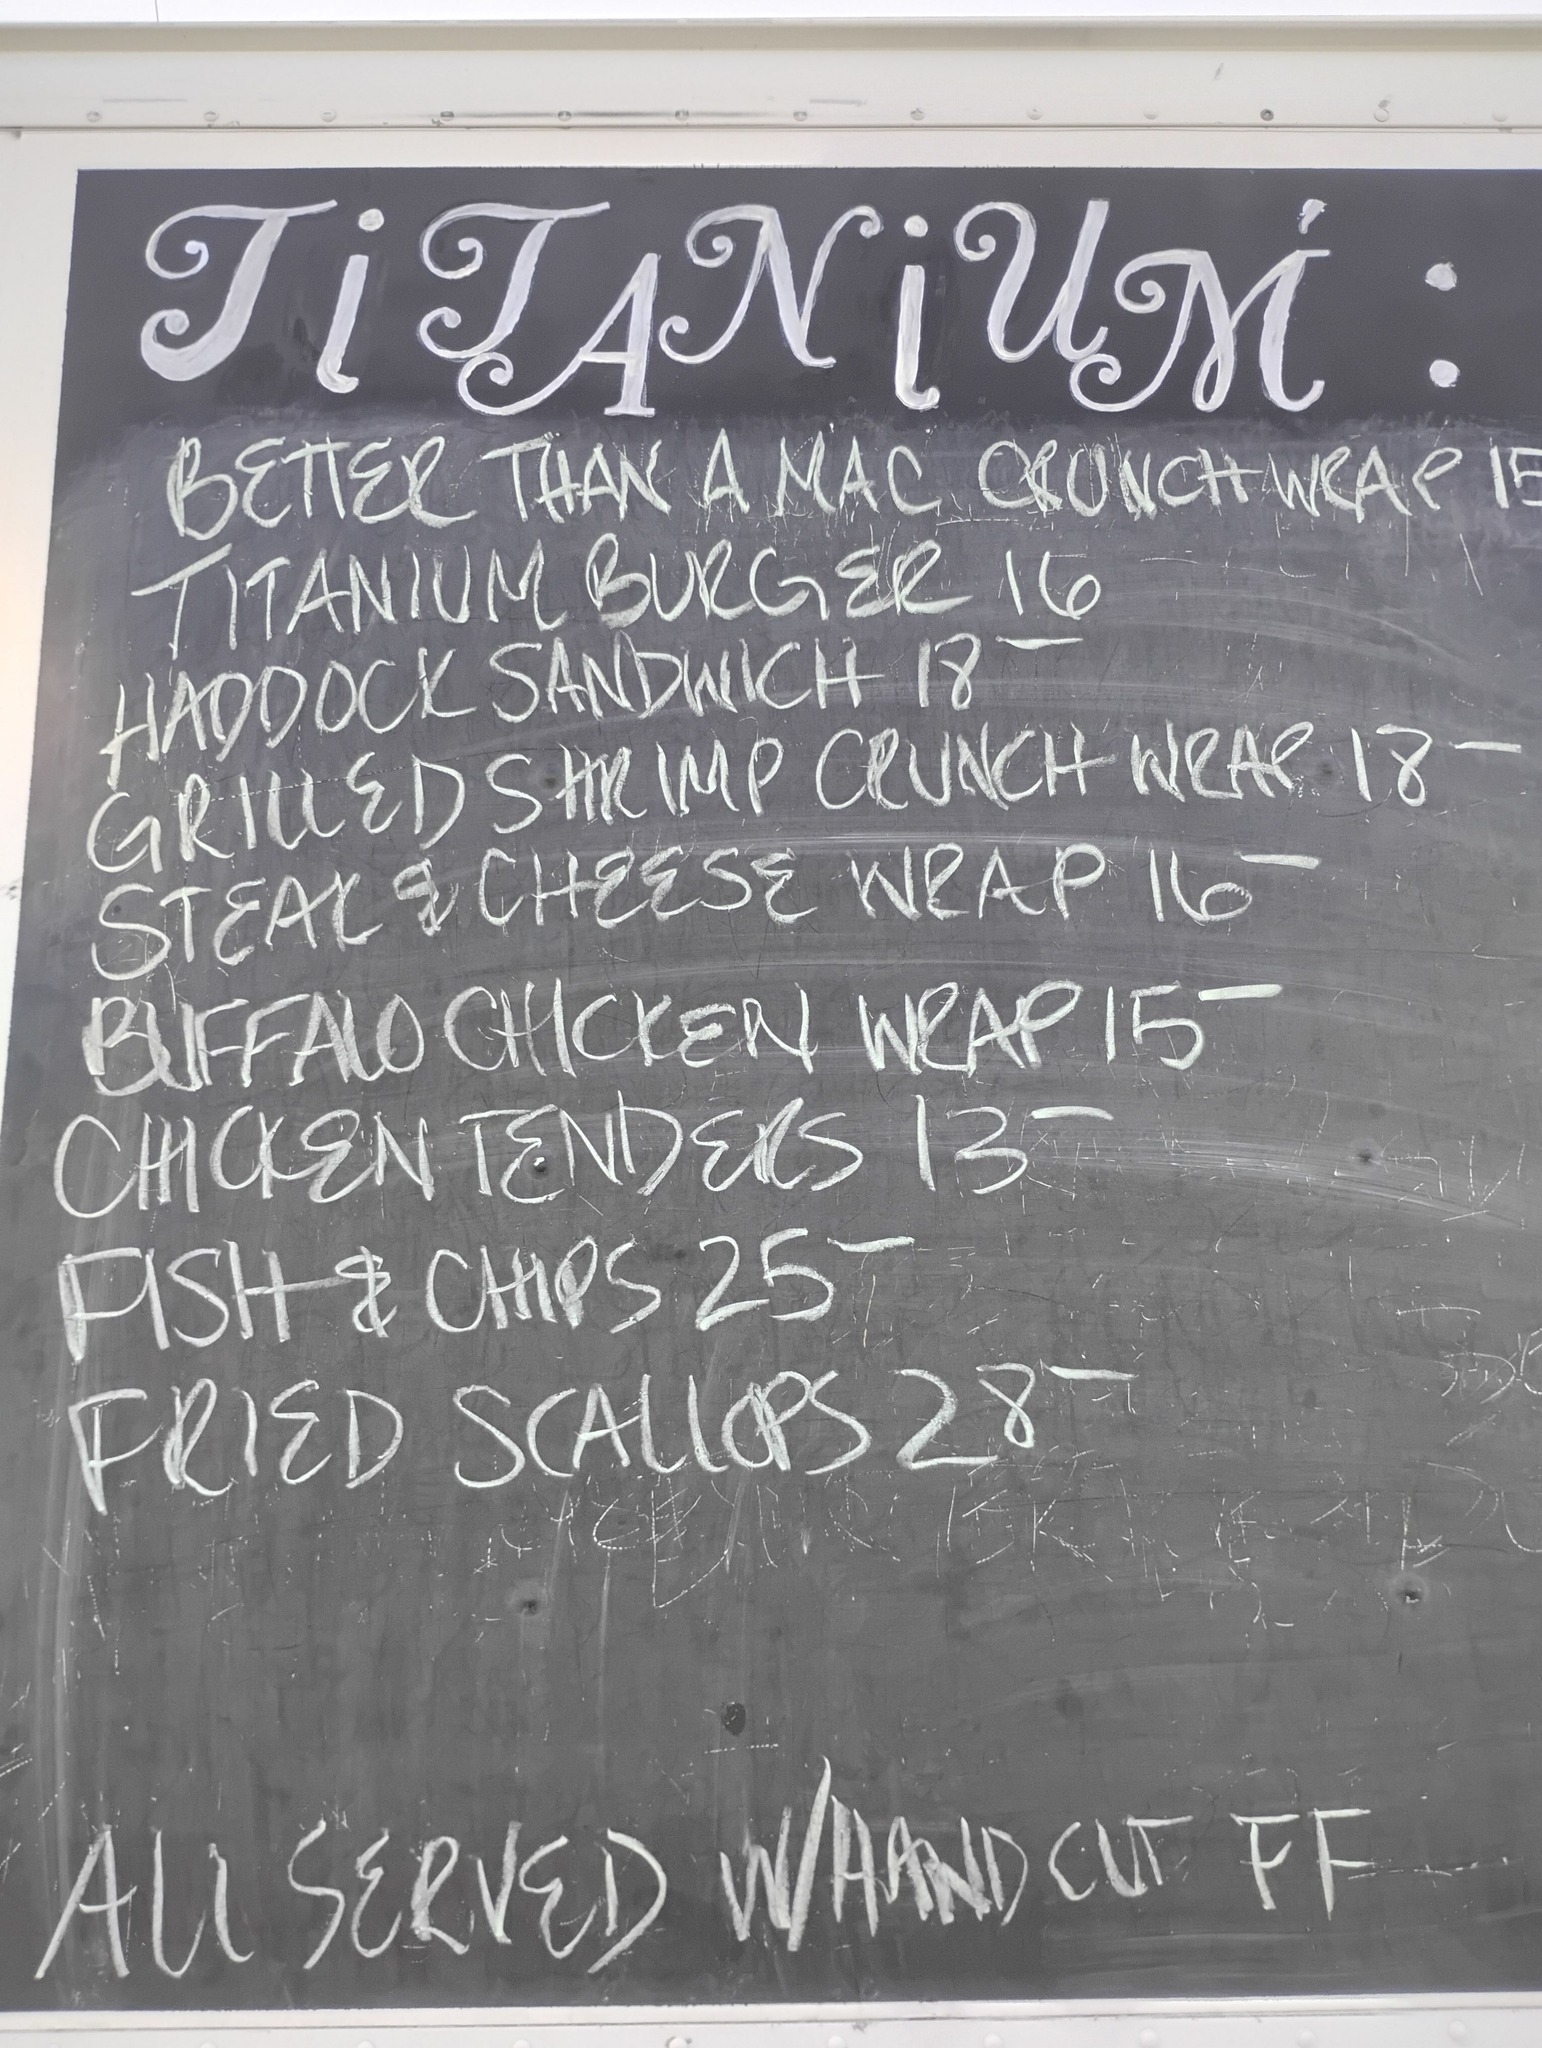 TiTANiUM :
BETTER THAN A MAC CRUNCH WRAP 15
TITANIUM BURGER 16
HADDOCK SANDWICH 18-
GRILLED SHRIMP CRUNCH WRAP 18-
STEAK & CHEESE WRAP 16-
BUFFALO CHICKEN WRAP 15-
CHICKEN TENDERS 13-
FISH & CHIPS 25-
FRIED SCALLOPS 28-
ALL SERVED W/HAND CUT FF